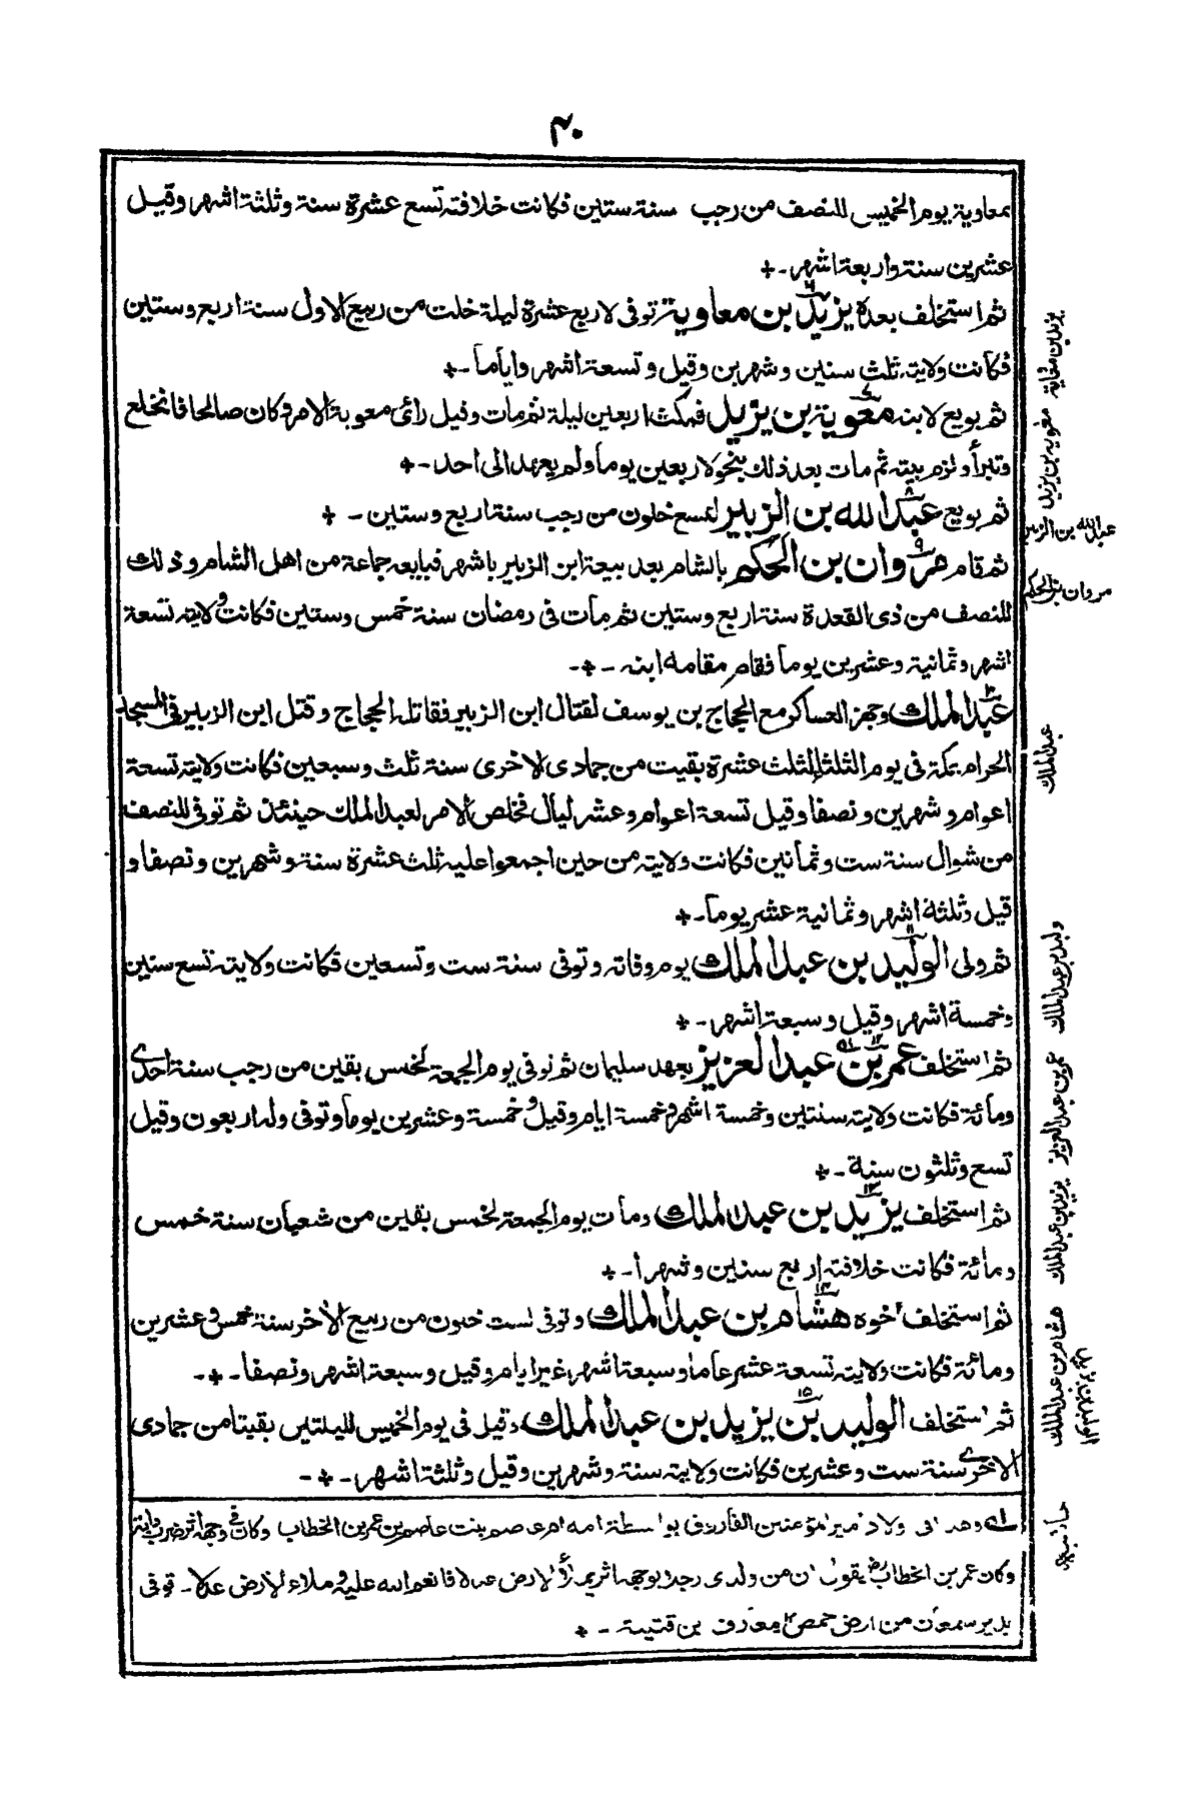 ۴۰
بمعاوية يوم الخميس للنصف من رجب سنة ستين فكانت خلافته تسع عشرة سنة وثلثة اشهر وقيل
عشرين سنة واربعة اشهر ـ ؞
ثم استخلف بعده يزيد بن معاوية توفى لاربع عشرة ليلة خلت من ربيع الاول سنة اربع وستين
فكانت ولايته ثلث سنين وشهرين وقيل وتسعة اشهر واياما ـ ؞
ثم بويع لابنه معوية بن يزيد فمكث اربعين ليلة ثم مات وقيل رأى معوية الامر وكان صالحا فانخلع
وتبرأ ولزم بيته ثم مات بعد ذلك بنحو لاربعين يوما ولم يعهد الى احد ـ ؞
ثم بويع عبد الله بن الزبير لتسع خلون من رجب سنة اربع وستين ـ ؞
ثم قام مروان بن الحكم بالشام بعد بيعة ابن الزبير باشهر فبايعه جماعة من اهل الشام وذلك
للنصف من ذى القعدة سنة اربع وستين ثم مات فى رمضان سنة خمس وستين فكانت ولايته تسعة
اشهر وثمانية وعشرين يوما فقام مقامه ابنه ـ ؞ ـ
عبد الملك وجهز العساكر مع الحجاج بن يوسف لقتال ابن الزبير فقاتله الحجاج وقتل ابن الزبير فى المسجد
الحرام بمكة فى يوم الثلثا لثلث عشرة بقيت من جمادى الاخرى سنة ثلث وسبعين فكانت ولايته تسعة
اعوام وشهرين ونصفا وقيل تسعة اعوام وعشر ليال فخلص الامر لعبد الملك حينئذ ثم توفى للنصف
من شوال سنة ست وثمانين فكانت ولايته من حين اجمعوا عليه ثلث عشرة سنة وشهرين ونصفا و
قيل وثلثة اشهر وثمانية عشر يوما ـ ؞
ثم ولى الوليد بن عبد الملك يوم وفاته وتوفى سنة ست وتسعين فكانت ولايته تسع سنين
وخمسة اشهر وقيل وسبعة اشهر ـ ؞
ثم استخلف عمر بن عبد العزيز بعهد سليمان ثم توفى يوم الجمعة لخمس بقين من رجب سنة احدى
ومائة فكانت ولايته سنتين وخمسة اشهر وخمسة ايام وقيل وخمسة وعشرين يوما وتوفى وله اربعون وقيل
تسع وثلثون سنة ـ ؞
ثم استخلف يزيد بن عبد الملك ومات يوم الجمعة لخمس بقين من شعبان سنة خمس
ومائة فكانت خلافته اربع سنين وشهرا ـ ؞
ثم استخلف اخوه هشام بن عبد الملك وتوفى لست خلون من ربيع الاخر سنة خمس وعشرين
ومائة فكانت ولايته تسعة عشر عاما وسبعة اشهر غير ايام وقيل وسبعة اشهر ونصفا ـ ؞ ـ
ثم استخلف الوليد بن يزيد بن عبد الملك وقيل فى يوم الخميس لليلتين بقيتا من جمادى
الاخرى سنة ست وعشرين فكانت ولايته سنة وشهرين وقيل وثلثة اشهر ـ ؞ ـ
وكان عمر بن الخطاب يقول ان من ولدى رجلا بوجهه اثر يملأ الارض عدلا ـ توفى
بدير سمعان من ارض حمص معارف بن قتيبة ـ ؞
يزيد بن معاوية
معويه بن يزيد
عبد الله بن الزبير
مروان بن الحكم
عبد الملك
وليد بن عبد الملك
عمر بن عبد العزيز
يزيد بن عبد الملك
هشام بن عبد الملك